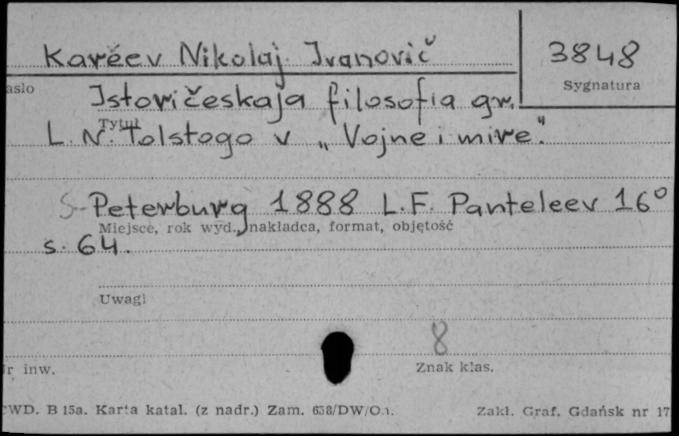 Karéev Nikolaj Ivanovič
3848
asło
Sygnatura
Istoričeskaja filosofia gr.
Tytuł
L. N. Tolstogo v „Vojne i mire".
S-Peterburg 1888 L.F. Panteleev 16°
Miejsce, rok wyd., nakładca, format, objętość
s. 64.
Uwagi
8
r inw.
Znak klas.
WD. B 15a. Karta katal. (z nadr.) Zam. 638/DW/
Zakł. Graf. Gdańsk nr 17